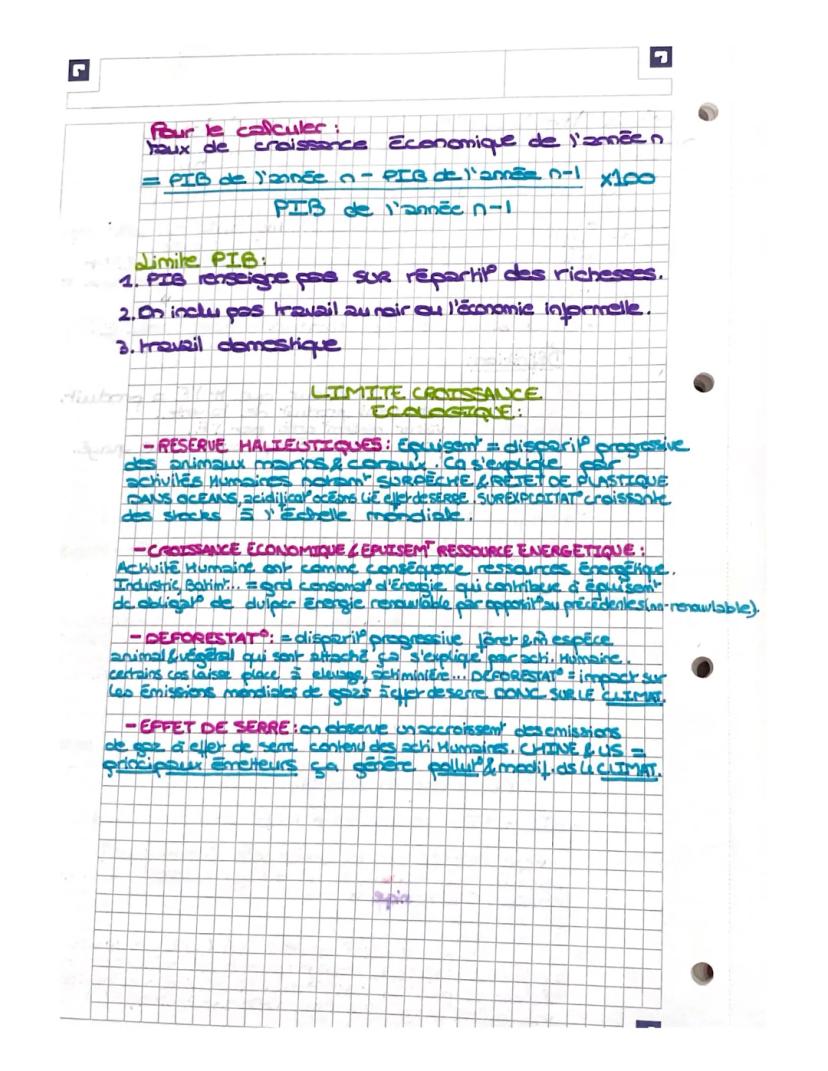 Pour le calculer :
taux de croissance Économique de l'année n
= PIB de l'année n - PIB de l'année n-1 x100
PIB de l'année n-1
Limite PIB :
1. PIB renseigne pas SUR répartit° des richesses.
2. On inclu pas travail au noir ou l'économie informelle.
3. travail domestique
LIMITE CROISSANCE
ECOLOGIQUE :
- RESERVE HALIEUTIQUES : Epuisent = disparit° progressive
des animaux marins & coraux. Ca s'explique par
activités Humaines notamt SURPÊCHE & REJET DE PLASTIQUE
DANS OCEANS, acidificat° océans LIÉ effet de SERRE. SUREXPLOITAT° croissante
des stocks à l'échelle mondiale.
- CROISSANCE ÉCONOMIQUE & EPUISEMT RESSOURCE ENERGETIQUE :
Activité Humaine ont comme conséquence ressources Energétique.
Industrie, Batim... = grd consomat° d'Energie qui contribue à épuisemt
de obligat° de dvlper Energie renouvlable par opposit° au précédentes (non-renouvlable).
- DEFORESTAT° : = disparit° progressive fôret & espèce
animal & végétal qui sont attaché ça s'explique par acti. Humaine.
certains cas laisse place à elevage, acti minière... DEFORESTAT° = impact sur
les Emissions mondiales de gazs à effet de serre DONC SUR LE CLIMAT.
- EFFET DE SERRE : on observe un accroissemt des emissions
de gaz à effet de serre contenu des acti. Humaines. CHINE & US =
principaux émetteurs ça génère pollut° & modif. ds le CLIMAT.